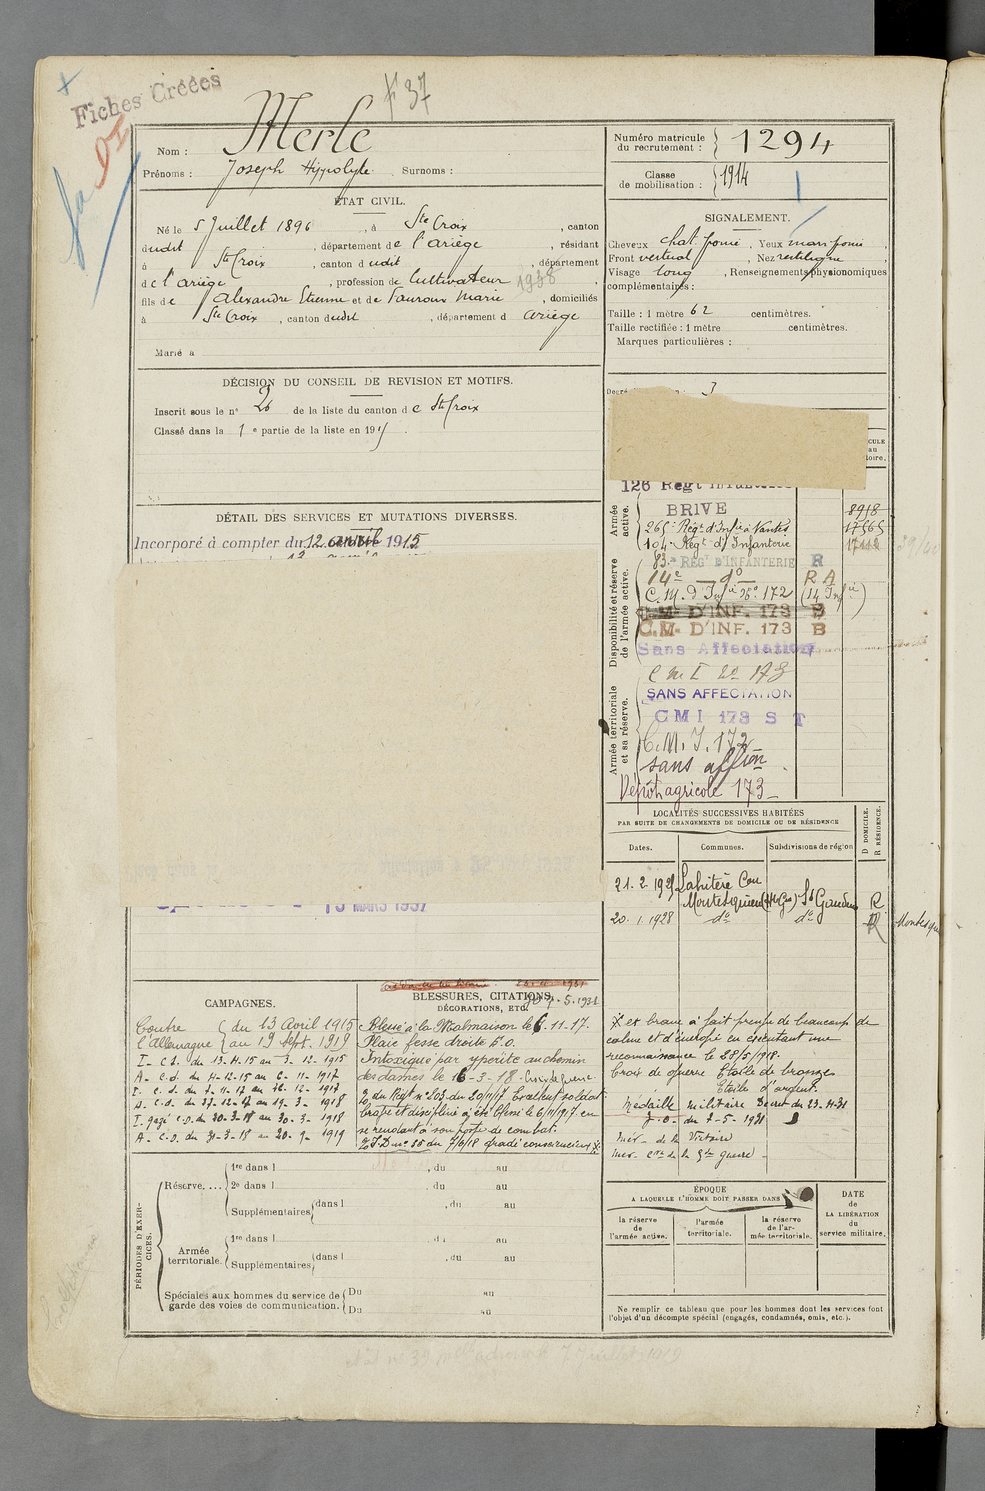 Fiches Créées
37
Nom : Merle
Prénoms : Joseph Hippolyte Surnoms :
Numéro matricule du recrutement : 1294
Classe de mobilisation : 1914
ÉTAT CIVIL.
Né le 5 Juillet 1896, à Ste Croix, canton
dudit, département de l'ariège, résidant
à Ste Croix, canton dudit, département
de l'ariège, profession de Cultivateur 1938
fils de Alexandre Etienne et de Fauroux Marie, domiciliés
à Ste Croix, canton dudit, département d Ariège
Marié à
SIGNALEMENT.
Cheveux chat. foncé, Yeux mar. foncé,
Front vertical, Nez rectiligne,
Visage long, Renseignements physionomiques
complémentaires :
Taille : 1 mètre 62 centimètres.
Taille rectifiée : 1 mètre centimètres.
Marques particulières :
DÉCISION DU CONSEIL DE REVISION ET MOTIFS.
Inscrit sous le n° 26 de la liste du canton de Ste Croix
Classé dans la 1e partie de la liste en 191
3
DÉTAIL DES SERVICES ET MUTATIONS DIVERSES.
Incorporé à compter du 12 avril 1915
13 MARS 1937
126 Régt Infanterie
Armée active.
BRIVE
8918
265e Régt d'Infie à Nantes
17565
104e Régt d'Infanterie
Disponibilité et réserve de l'armée active.
83e REGt D'INFANTERIE R
14e — do — R A
C. M. d'Infie No 172 (14 Infie)
C.M. D'INF. 173 B
C.M. D'INF. 173 B
Sans Affectation
C M I No 173
Armée territoriale et sa réserve.
SANS AFFECTATION
CMI 173 S T
C.M.I. 172
sans affion
Dépôt agricole 173
LOCALITÉS SUCCESSIVES HABITÉES
PAR SUITE DE CHANGEMENTS DE DOMICILE OU DE RÉSIDENCE
Dates. Communes. Subdivisions de région D DOMICILE. R RÉSIDENCE.
21. 2. 1925 Lahitère Con
Montesquieu (Hte Gne) St Gaudens R
20. 1. 1928 do do R
CAMPAGNES.
Contre l'Allemagne { du 13 Avril 1915
au 19 Sept. 1919
I - C.S. du 13-4-15 au 3-12-1915
A - C.d. du 4-12-15 au 6-11-1917
I. C. d. du 7-11-17 au 26-12-1917
A. C.d. du 27-12-17 au 19-3-1918
I. gazé C.D. du 20-3-18 au 30-3-1918
A - C.D. du 31-3-18 au 20-9-1919
BLESSURES, CITATIONS,
DÉCORATIONS, ETC.
Blessé à la Malmaison le 6.11.17.
Plaie fesse droite E.O.
Intoxiqué par ypérite au chemin
des dames le 16-3-18. Croix de guerre
O. du Régt n° 503 du 20/11/17 Excellent soldat
brave et discipliné a été blessé le 6/11/17 en
se rendant à son poste de combat.
O.I.D n° 85 du 7/6/18 gradé consciencieux
et brave a fait preuve de beaucoup de
calme et d'énergie en exécutant une
reconnaissance le 28/5/1918.
Croix de guerre Etoile de bronze
Etoile d'argent.
Médaille militaire Décret du 23-4-31
J.O. du 7-5-1931
Mér. de la Victoire
Mér. cve de la Gde guerre
PÉRIODES D'EXERCICES.
Réserve. ... 1re dans l , du au
2e dans l , du au
Supplémentaires dans l , du au
Armée territoriale. 1re dans l , du au
Supplémentaires dans l , du au
Spéciales aux hommes du service de garde des voies de communication. Du au
Du au
ÉPOQUE
A LAQUELLE L'HOMME DOIT PASSER DANS
la réserve de l'armée active. l'armée territoriale. la réserve de l'armée territoriale.
DATE de LA LIBÉRATION du service militaire.
Ne remplir ce tableau que pour les hommes dont les services font
l'objet d'un décompte spécial (engagés, condamnés, omis, etc.).